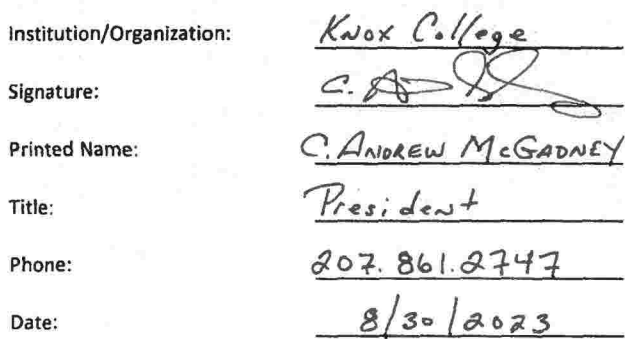 Institution/Organization: Knox College
Signature: C.
Printed Name: C. ANDREW McGADNEY
Title: President
Phone: 207.861.2747
Date: 8/30/2023